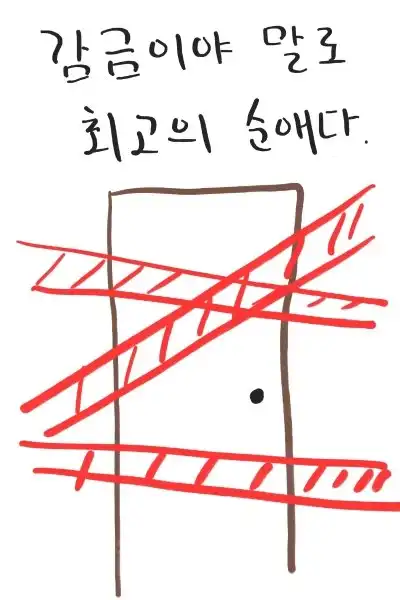 감금이야 말로
최고의 순애다.